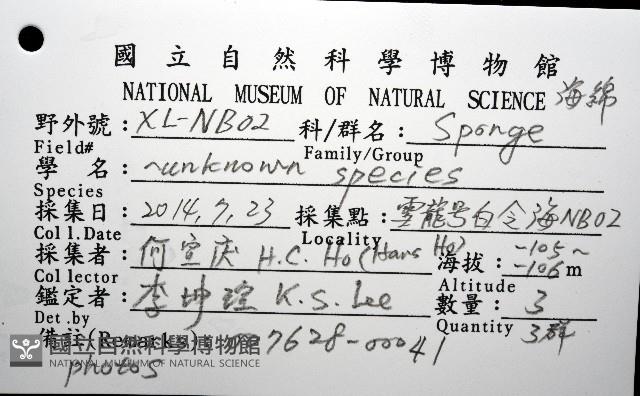 國立自然科學博物館
NATIONAL MUSEUM OF NATURAL SCIENCE 海綿
野外號：XL-NB02 科/群名：Sponge
Field# Family/Group
學 名：~unknown species
Species
採集日：2014, 7, 23 採集點：雲龍号白令海NB02
Coll.Date Locality
採集者：何宣庆 H.C. Ho (Hans Ho) 海拔：-105~-106 m
Collector Altitude
鑑定者：李坤瑄 K.S. Lee 數量：3
Det.by Quantity 3群
備註(Remarks) 7628-00041
國立自然科學博物館
NATIONAL MUSEUM OF NATURAL SCIENCE
photos